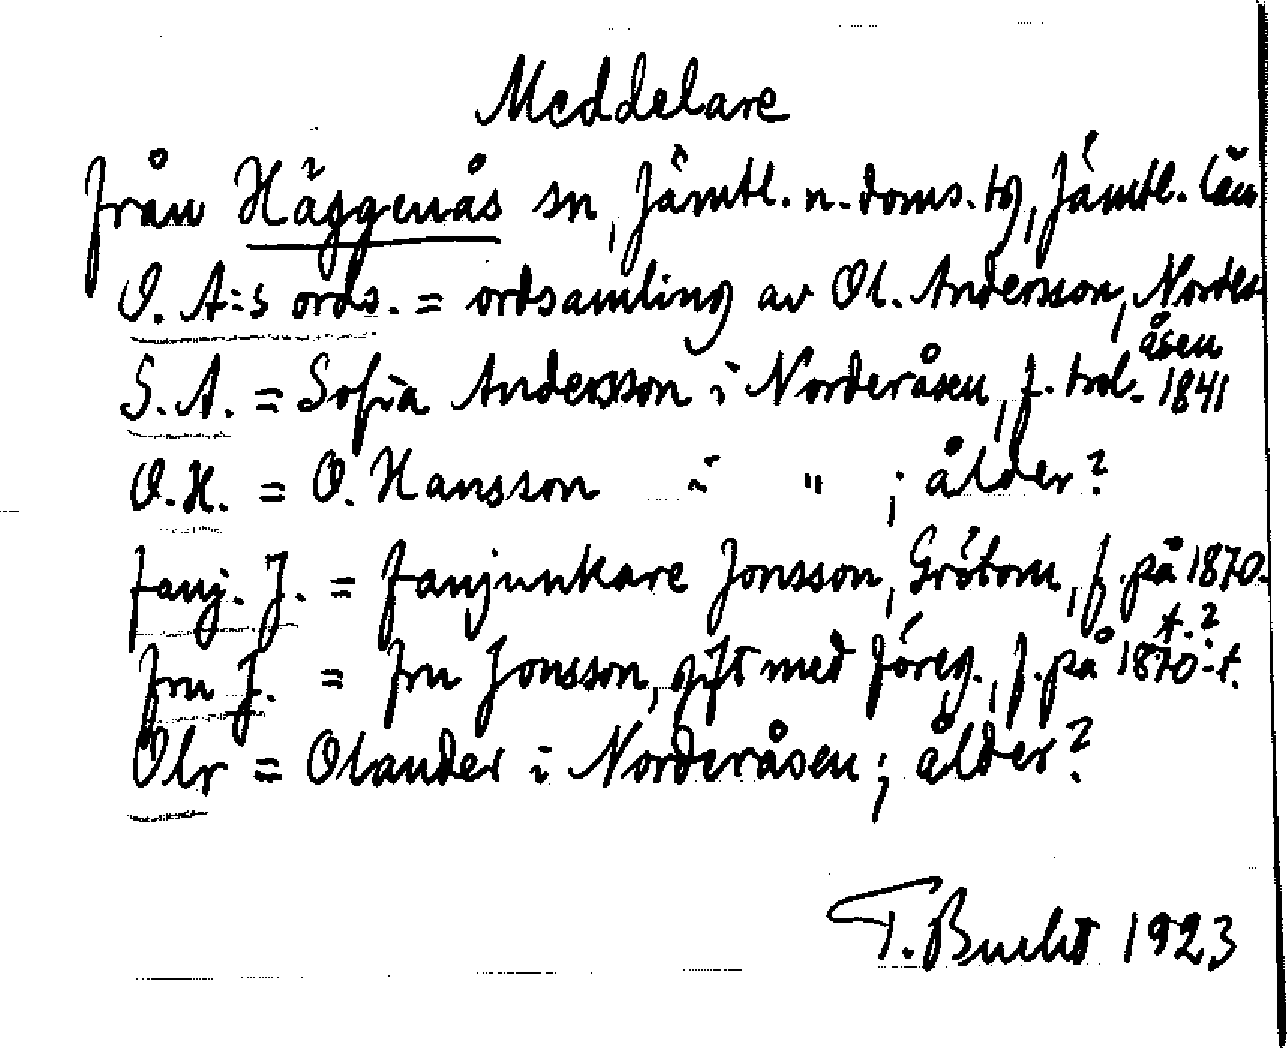 Meddelare
från Häggenås sn, Jämtl. n. doms. tg, Jämtl. län
O. A:s ords. = ordsamling av Ol. Andersson, Norder-
åsen
S. A. = Sofia Andersson i Norderåsen, f. trol. 1841
O. H. = O. Hansson i " ; ålder?
fanj. J. = fanjunkare Jonsson, Grötom, f. på 1870-
t.?
fru J. = fru Jonsson, gift med föreg., f. på 1870-t.
Olr = Olander i Norderåsen; ålder?
T. Bucht 1923